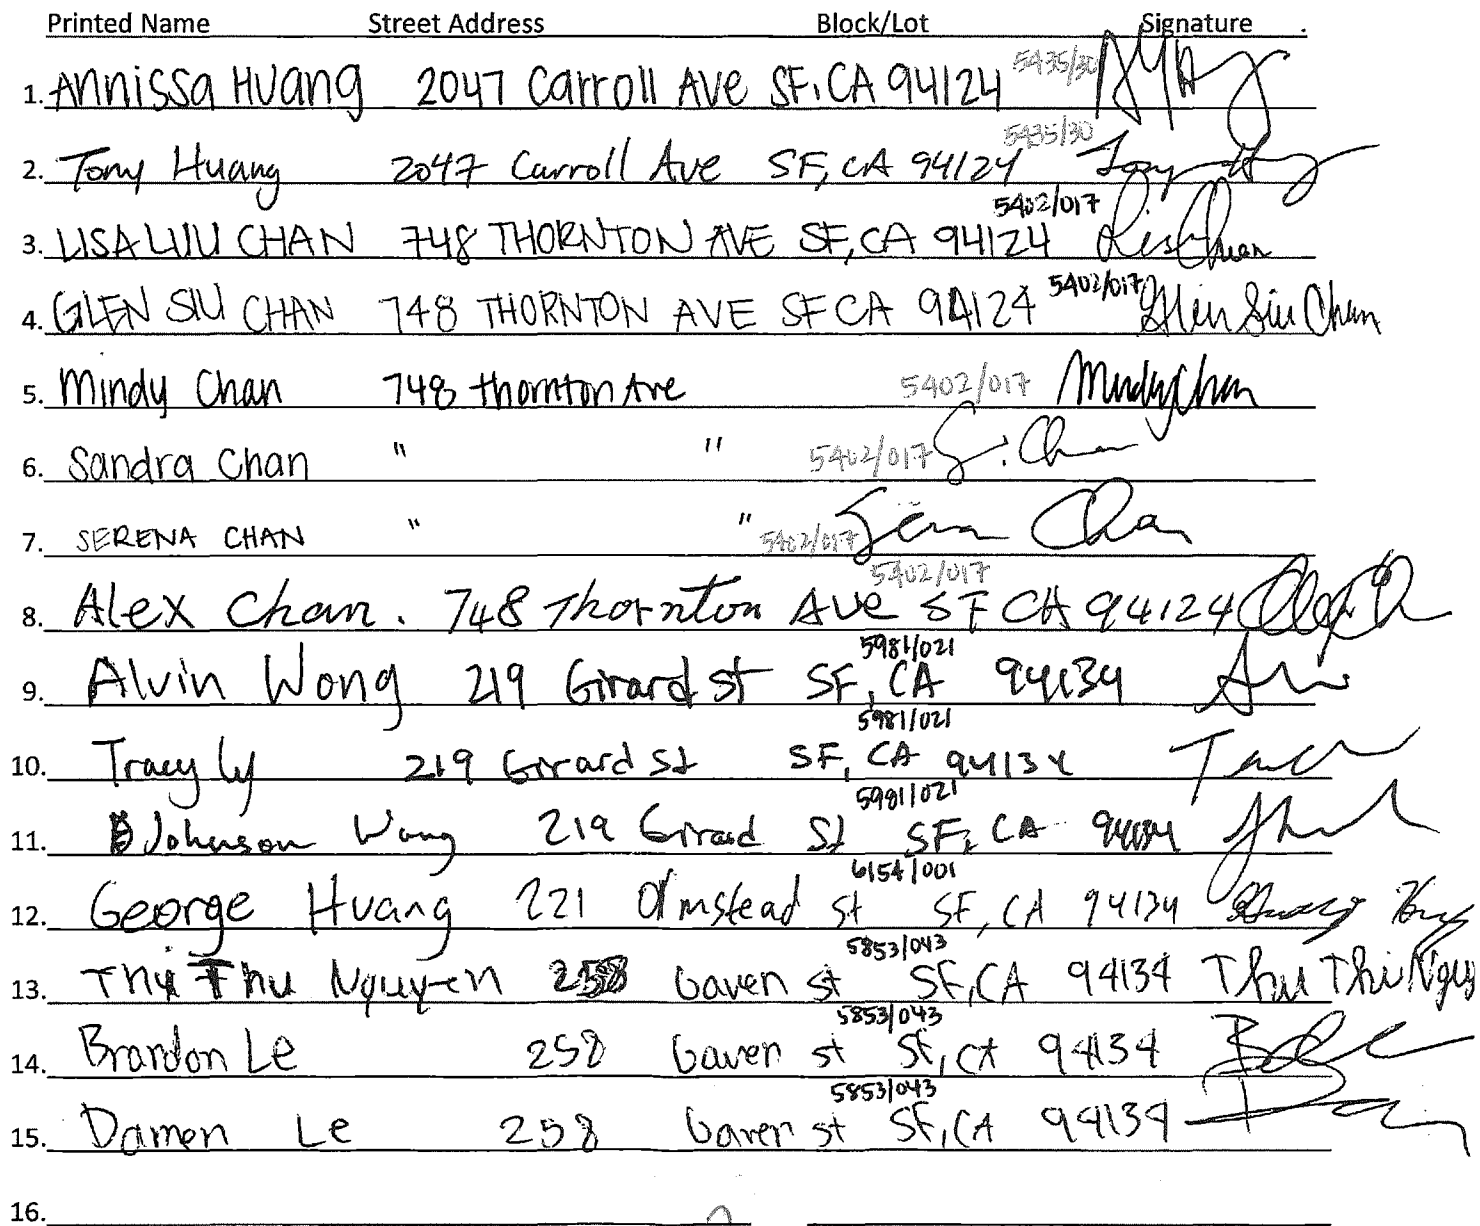 Printed Name Street Address Block/Lot Signature
1. Annissa Huang 2047 Carroll Ave SF, CA 94124 5435/30
2. Tony Huang 2047 Carroll Ave SF, CA 94124 5435/30 Tony Huang
3. LISA LIU CHAN 748 THORNTON AVE SF, CA 94124 5402/017 Lisa Chan
4. GLEN SIU CHAN 748 THORNTON AVE SF CA 94124 5402/017 Glen Siu Chan
5. Mindy Chan 748 thornton Ave 5402/017 Mindy Chan
6. Sandra Chan " " 5402/017 S. Chan
7. SERENA CHAN " " 5402/017 Chan
8. Alex Chan. 748 Thornton Ave SF CA 94124 5402/017
9. Alvin Wong 219 Girard st SF, CA 94134 5981/021
10. Tracy Ly 219 Girard St SF, CA 94134 5981/021
11. Johnson Wong 219 Girard St SF, CA 94134 5981/021
12. George Huang 221 Olmstead st SF, CA 94134 6154/001
13. Thu Nguyen 258 Gaven st SF, CA 94134 5853/043 Thu Thi Nguy
14. Brandon Le 258 Gaven st SF, CA 94134 5853/043
15. Damen Le 258 Gaven st SF, CA 94134 5853/043
16.